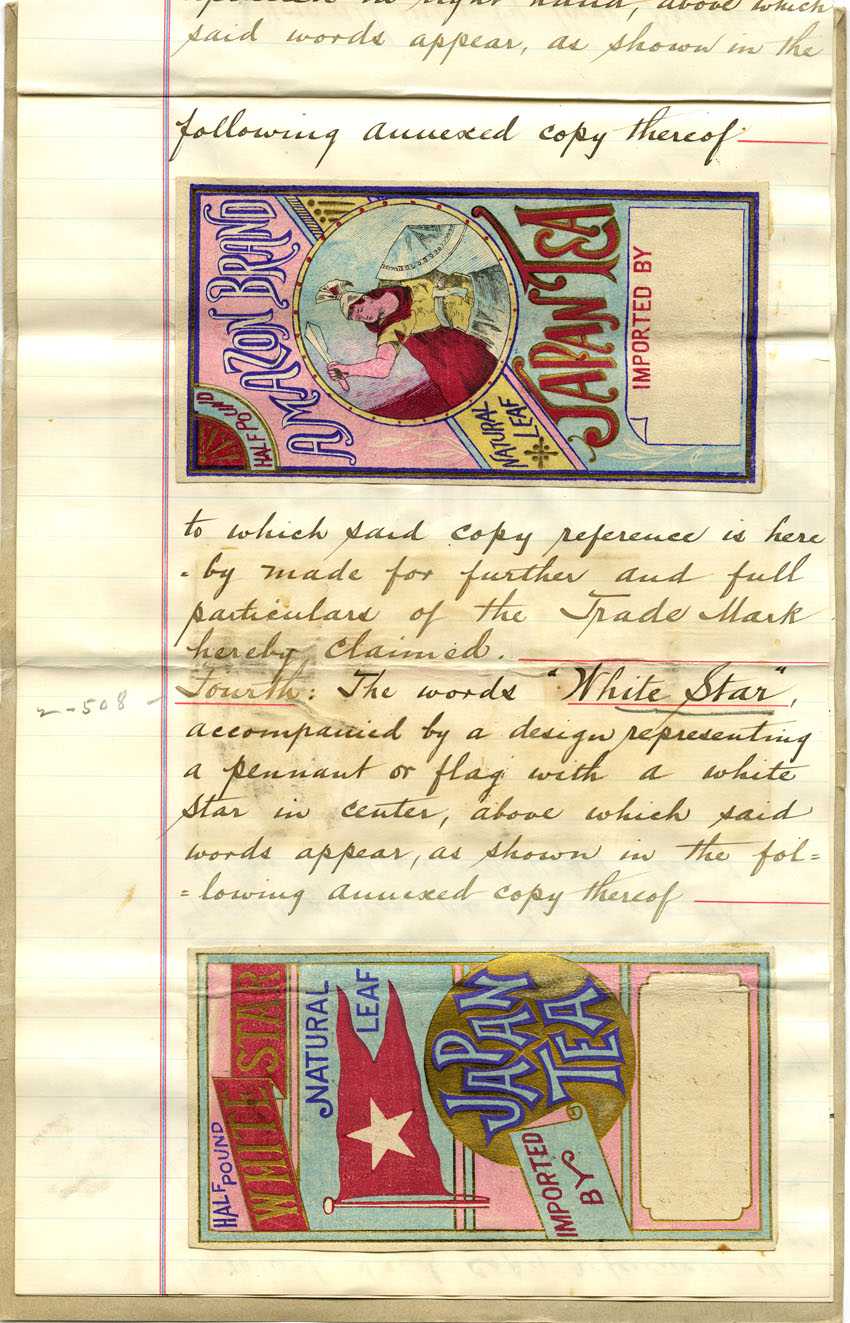 in right hand, above which
said words appear, as shown in the
following annexed copy thereof
AMAZON BRAND
HALF POUND
NATURAL
LEAF
JAPAN TEA
IMPORTED BY
to which said copy reference is here
= by made for further and full
particulars of the Trade Mark
hereby claimed.
2-508 -
Fourth: The words "White Star",
accompanied by a design representing
a pennant or flag with a white
star in center, above which said
words appear, as shown in the fol=
= lowing annexed copy thereof
HALF
POUND
WHITE STAR
NATURAL
LEAF
JAPAN
TEA
IMPORTED
BY